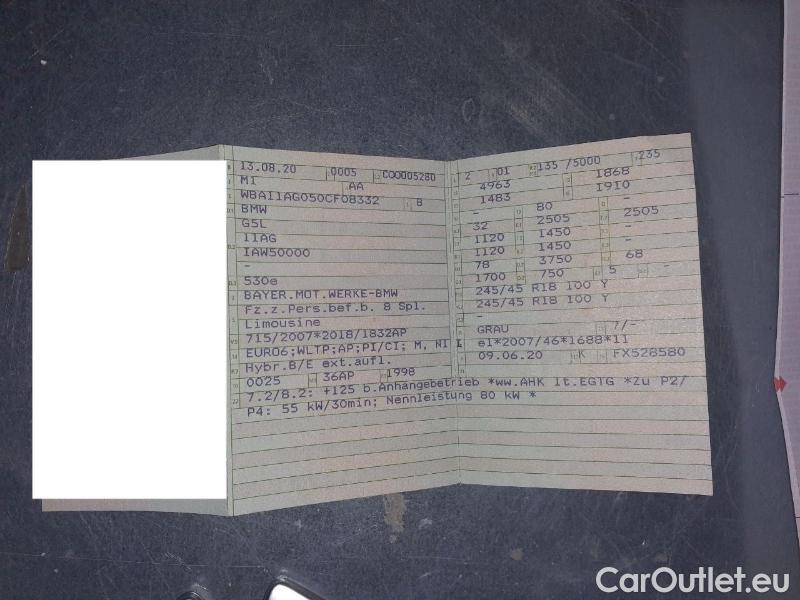 13.08.20 0005 CQQ005280
M1 AA
WBA11AG050CF08332 8
BMW
G5L
11AG
IAW50000
-
530e
BAYER.MOT.WERKE-BMW
Fz.z.Pers.bef.b. 8 Spl.
Limousine
715/2007*2018/1832AP
EURO6;WLTP;AP;PI/CI; M, N1 I
Hybr.B/E ext.aufl.
0025 36AP 1998
7.2/8.2: +125 b.Anhängebetrieb *ww.AHK lt.EGTG *Zu P2/
P4: 55 kW/30min; Nennleistung 80 kW *
2 01 135 /5000 235
4963 1868
1483 1910
- 80 -
32 2505 2505
1120 1450 -
1120 1450 -
78 3750 68
1700 750 5 -
245/45 R18 100 Y
245/45 R18 100 Y
-
GRAU 7/-
e1*2007/46*1688*11
09.06.20 K FX528580
CarOutlet.eu